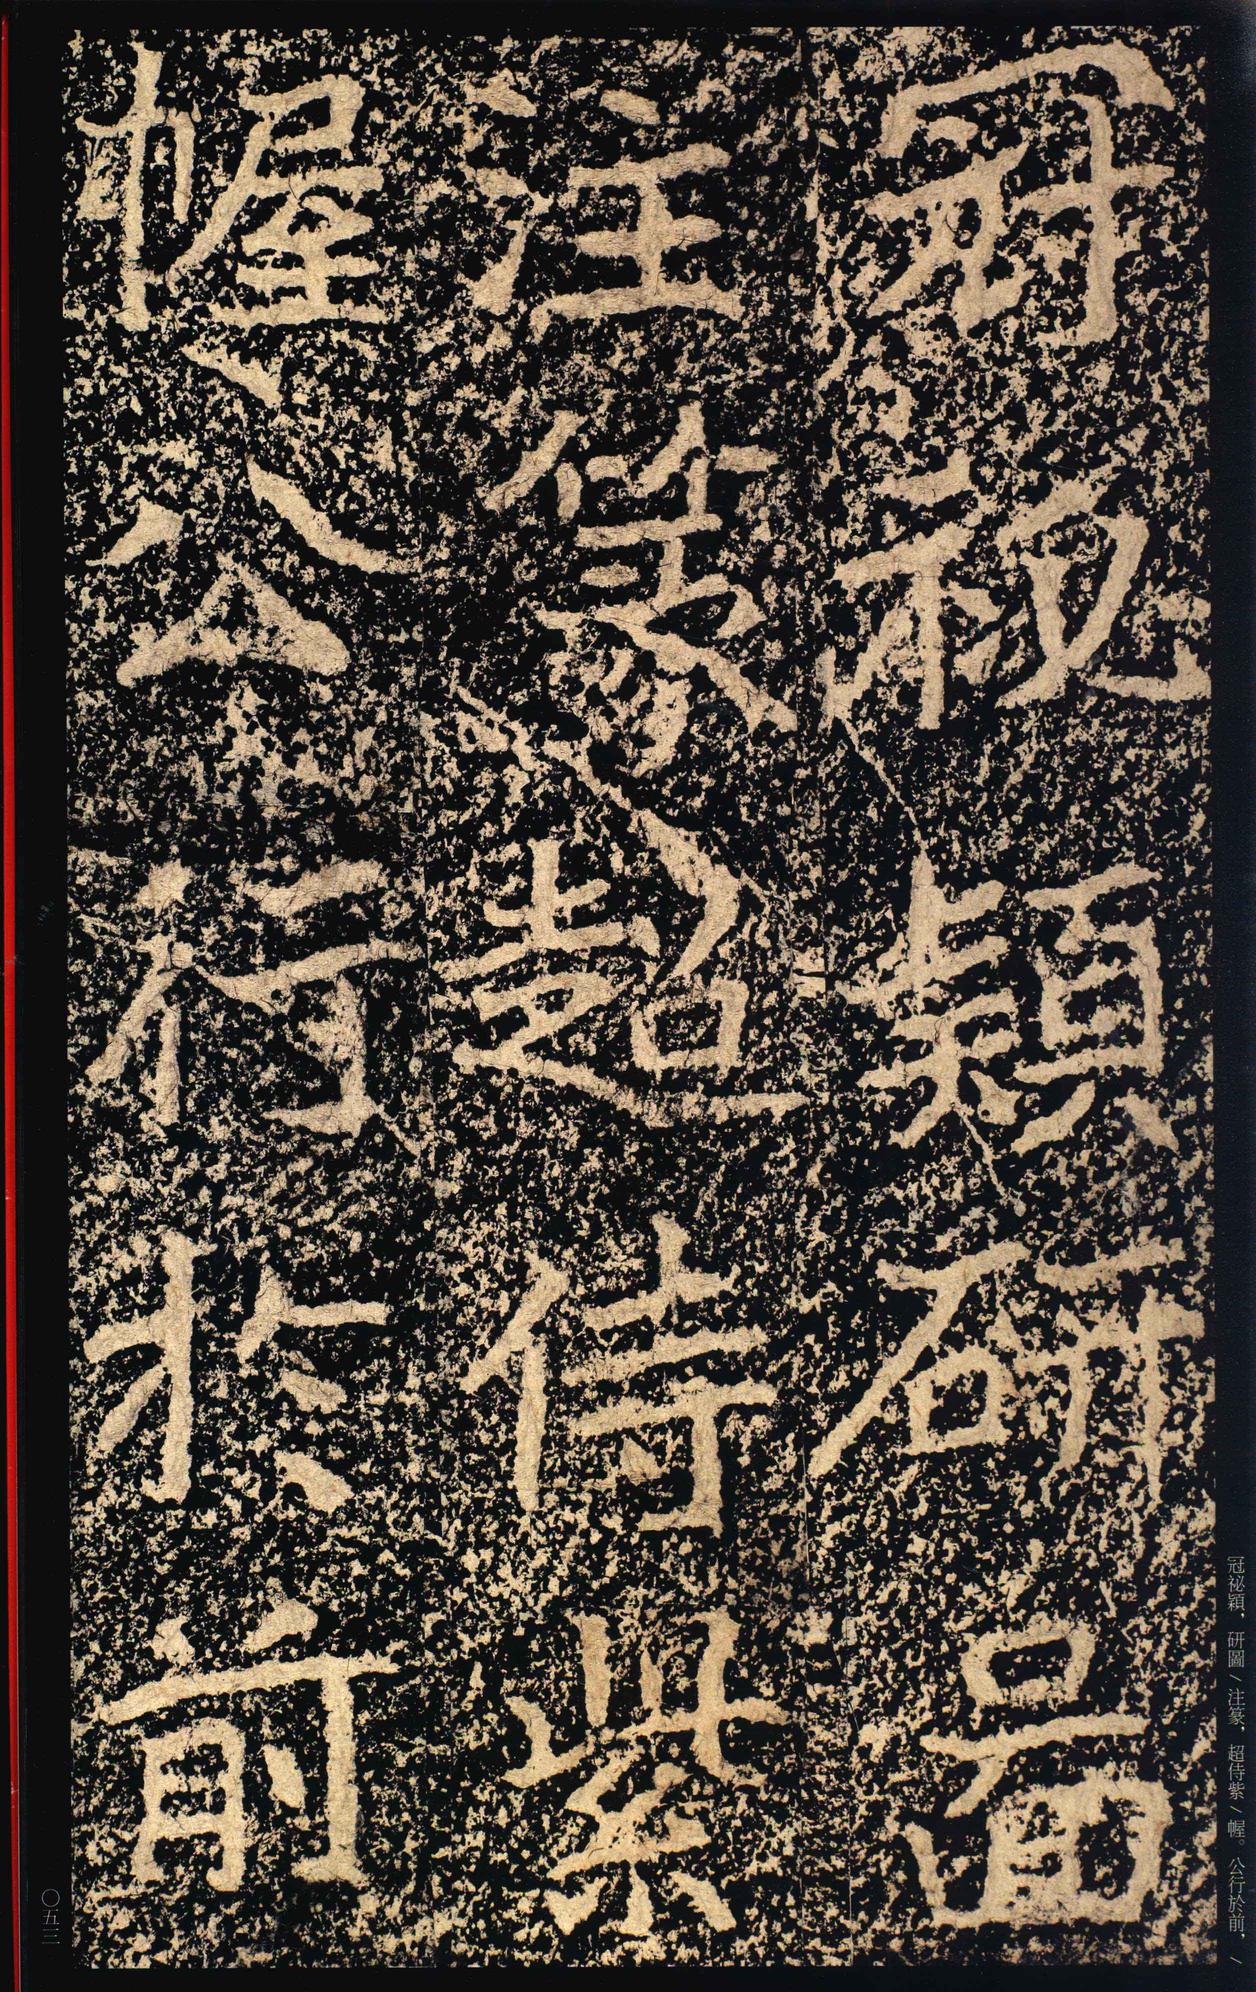 冠祕穎研圖
注篆超侍紫
幄公行於前
冠祕穎、研圖/注篆、超侍紫/幄。公行於前，/
〇五三